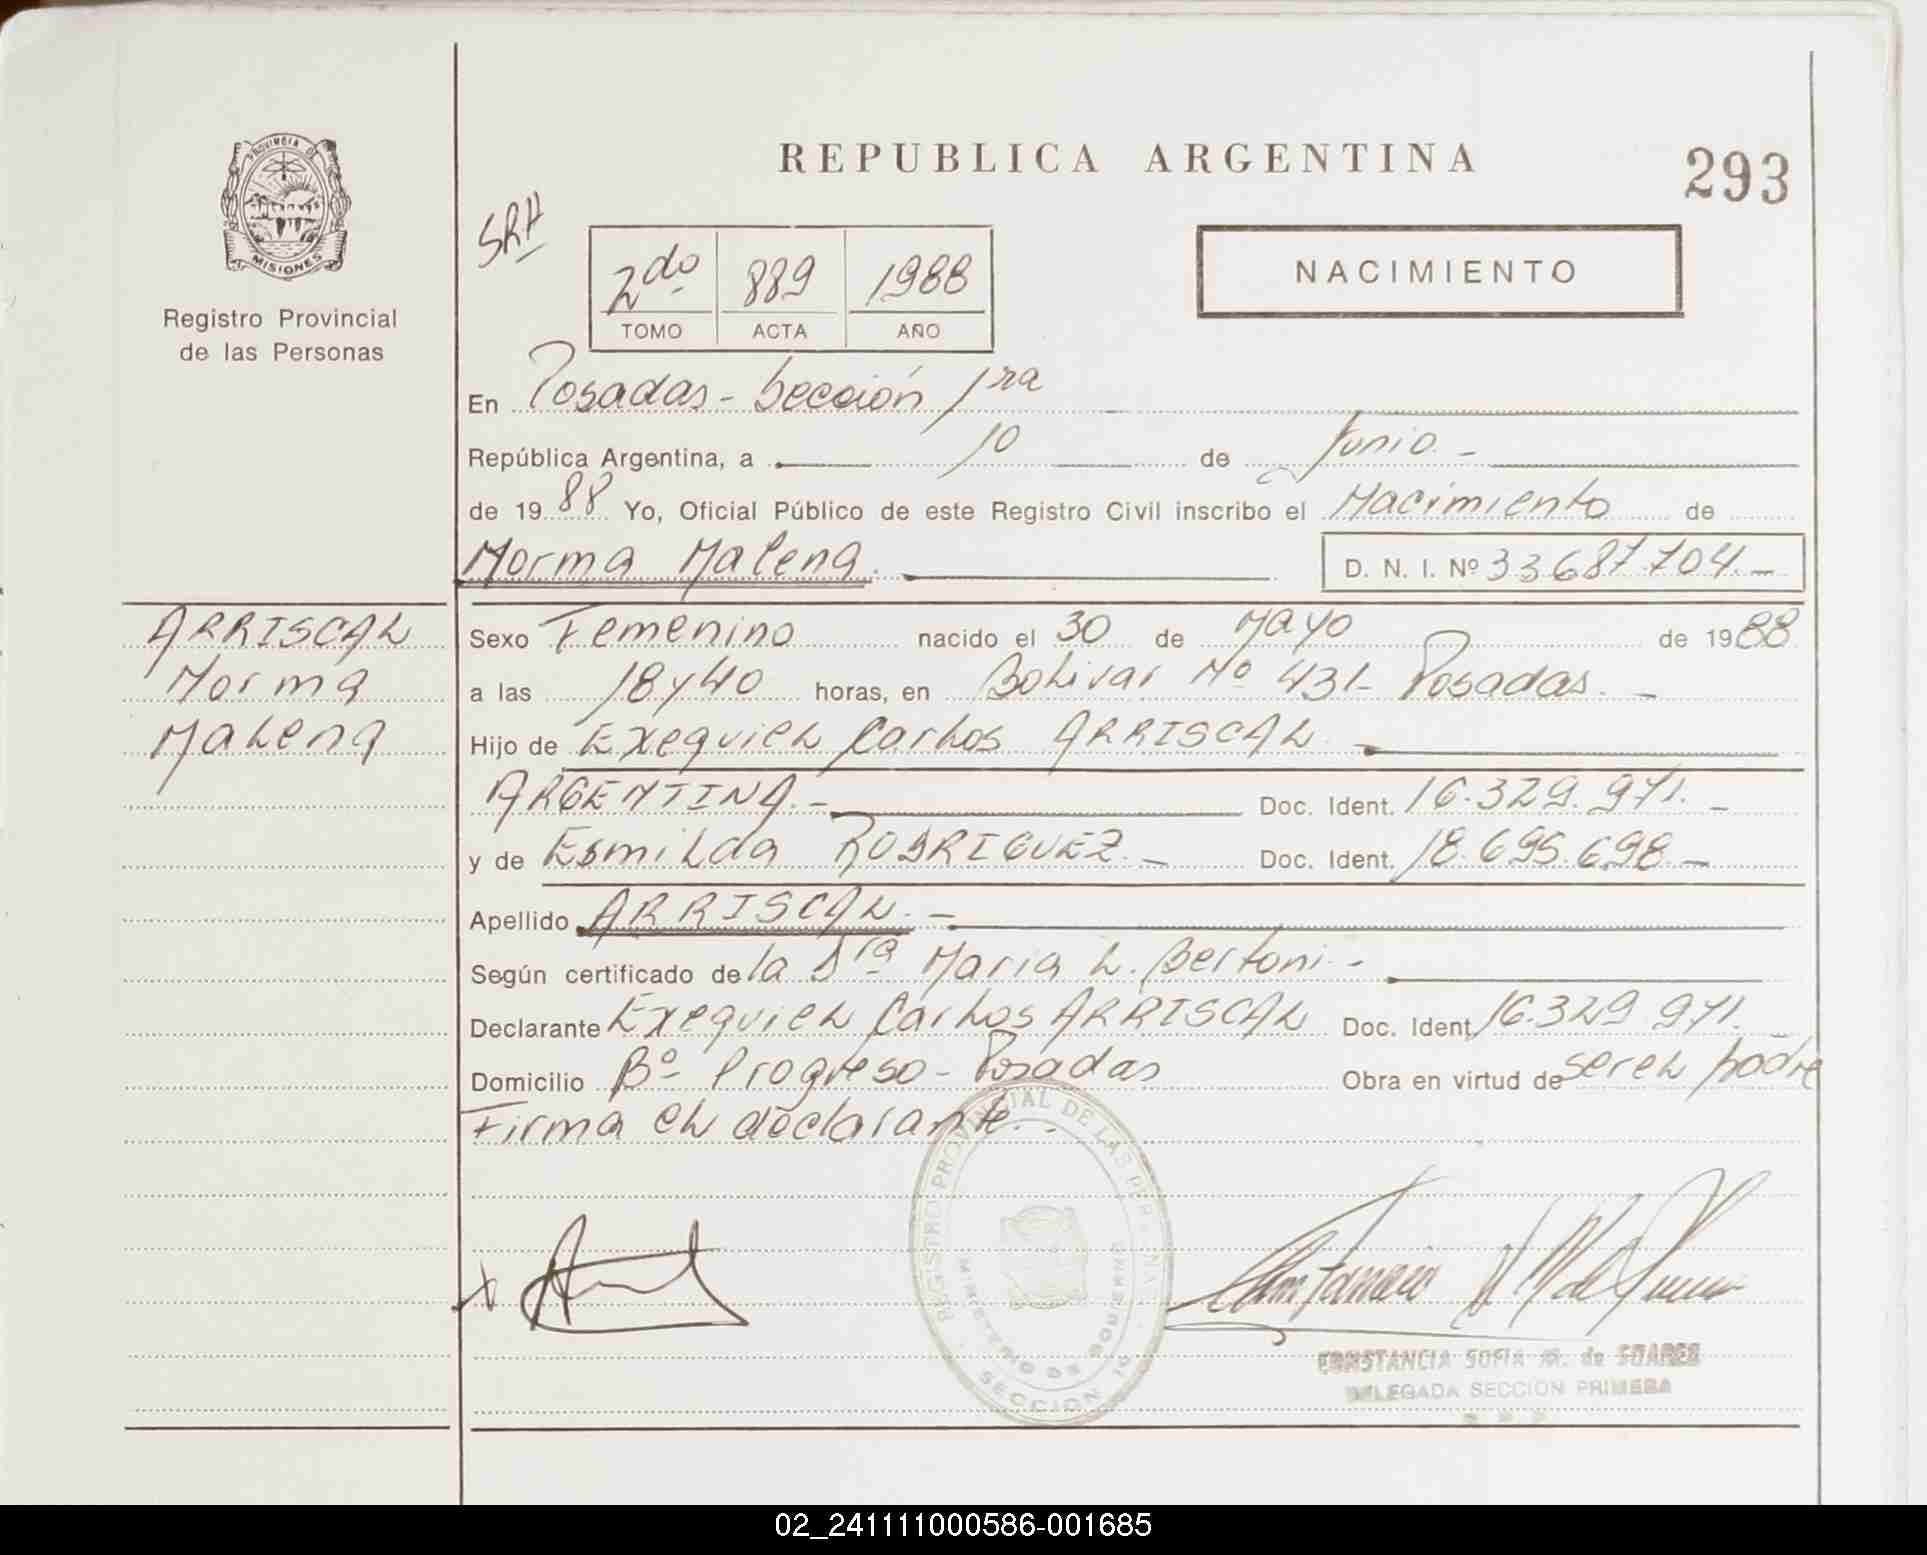 REPUBLICA ARGENTINA
293
PROVINCIA DE
MISIONES
Registro Provincial
de las Personas
SRH
2do 889 1988
TOMO ACTA AÑO
NACIMIENTO
En Posadas - Sección 1ra
República Argentina, a 10 de Junio -
de 1988 Yo, Oficial Público de este Registro Civil inscribo el Nacimiento de
Norma Malena. D. N. I. Nº 33687704.-
ARRISCAL
Norma
Malena
Sexo Femenino nacido el 30 de Mayo de 1988
a las 18 y 40 horas, en Bolivar Nº 431- Posadas. -
Hijo de Exequiel Carlos ARRISCAL
ARGENTINA.- Doc. Ident. 16.329.971. -
y de Esmilda RODRIGUEZ. - Doc. Ident. 18.695.698 -
Apellido ARRISCAL. -
Según certificado de la Dra Maria L. Bertoni. -
Declarante Exequiel Carlos ARRISCAL Doc. Ident. 16.329.971.
Domicilio Bº Progreso - Posadas Obra en virtud de ser el padre
Firma el declarante..
REGISTRO PROVINCIAL DE LAS PERSONAS
MINISTERIO DE GOBIERNO
SECCION 1ª
CONSTANCIA SOFIA M. de SUARES
DELEGADA SECCION PRIMERA
02_241111000586-001685